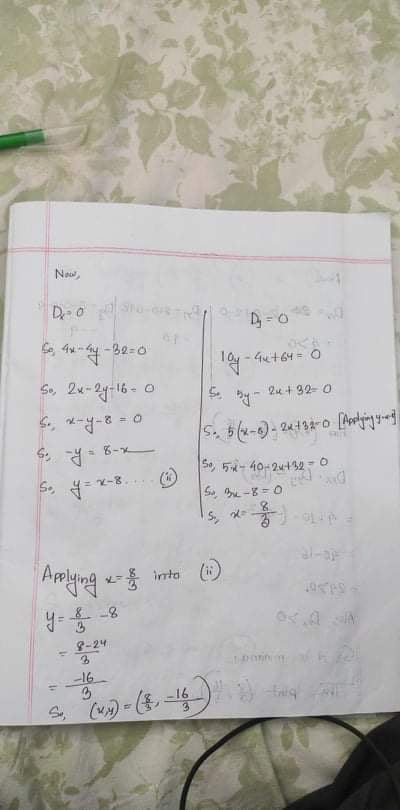 Now,
Dx=0
So, 4x-4y-32=0
So, 2x-2y-16=0
So, x-y-8=0
So, -y=8-x
So, y=x-8.....(ii)
Dy=0
10y-4x+64=0
So, 5y-2x+32=0
So, 5(x-8)-2x+32=0 [Applying y=x-8]
So, 5x-40-2x+32=0
So, 3x-8=0
So, x=8/3
Applying x=8/3 into (ii)
y=8/3-8
=8-24/3
=-16/3
So, (x,y)=(8/3, -16/3)